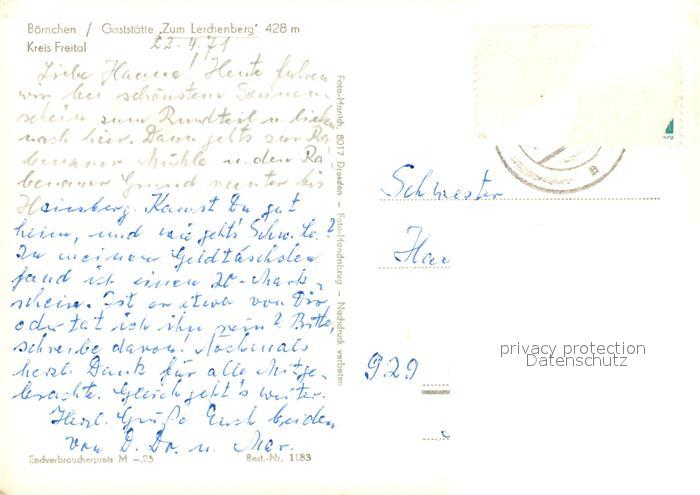 Börnchen / Gaststätte „Zum Lerchenberg" 428 m
Kreis Freital
22.4.71
Liebe Hanna! Heute fuhren
wir bei schönstem Sonnen-
schein zum Rundteil u. liefen
nach hier. Dann gehts zur Ra
benauer Mühle u. den Ra
benauer Grund runter bis
Hainsberg. Kamst Du gut
heim, und wie geht's Schw. Lo.?
In meinem Geldtäschchen
fand ich einen 20-Mark-
schein. Ist er etwa von Dir,
oder tat ich ihn rein? Bitte,
schreibe davon! Nochmals
herzl. Dank für alle Mitge-
brachte. Gleich geht's weiter.
Herzl. Grüße Euch beiden
von D. Do. u. Mar.
Endverbraucherpreis M –.25 Best.-Nr. 1183
Foto-Hantzh, 8017 Dresden – Foto-Handabzug – Nachdruck verboten
Schwester
Han
929
privacy protection
Datenschutz